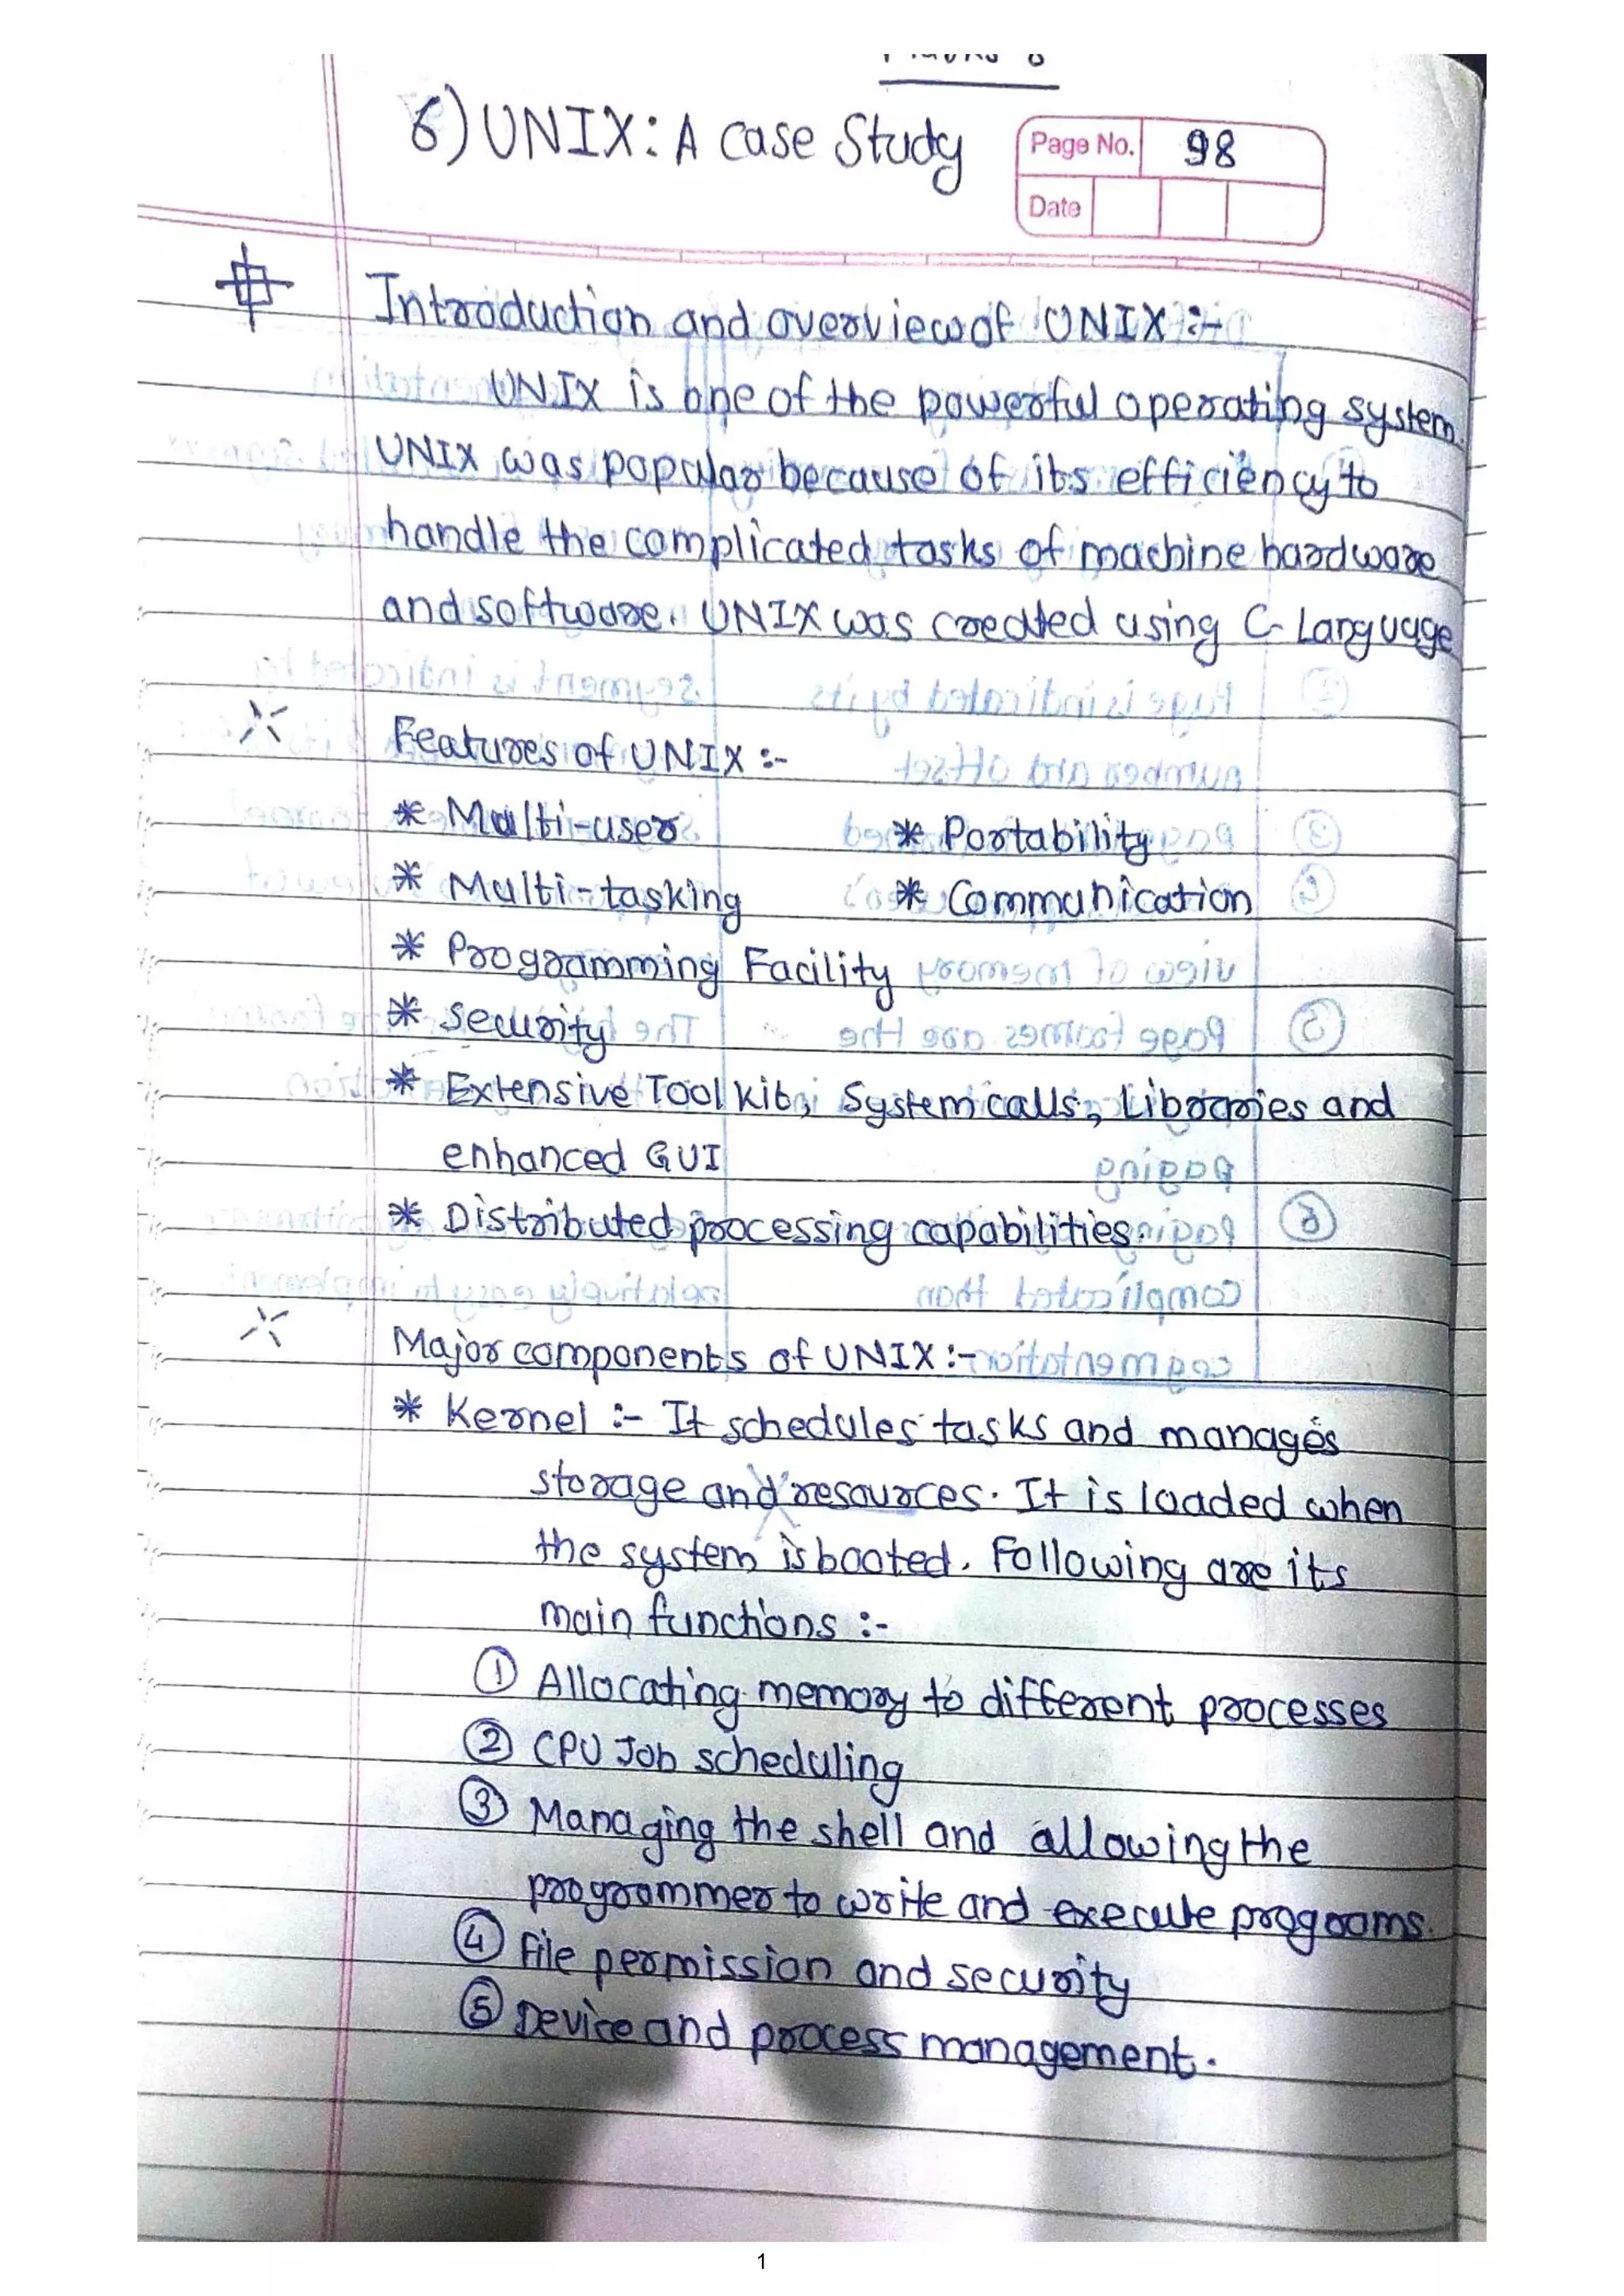 6) UNIX: A Case Study
Page No. 98
Date
Introduction and overview of UNIX :-
UNIX is one of the powerful operating system.
UNIX was popular because of its efficiency to
handle the complicated tasks of machine hardware
and software. UNIX was created using C-Language
Features of UNIX :-
* Multi-user * Portability
* Multi-tasking * Communication
* Programming Facility
* Security
* Extensive Tool kit, System calls, Libraries and
enhanced GUI
* Distributed processing capabilities.
Major components of UNIX :-
* Kernel :- It schedules tasks and manages
storage and resources. It is loaded when
the system is booted. Following are its
main functions :-
① Allocating memory to different processes
② CPU Job scheduling
③ Managing the shell and allowing the
programmer to write and execute programs.
④ File permission and security
⑤ Device and process management.
1